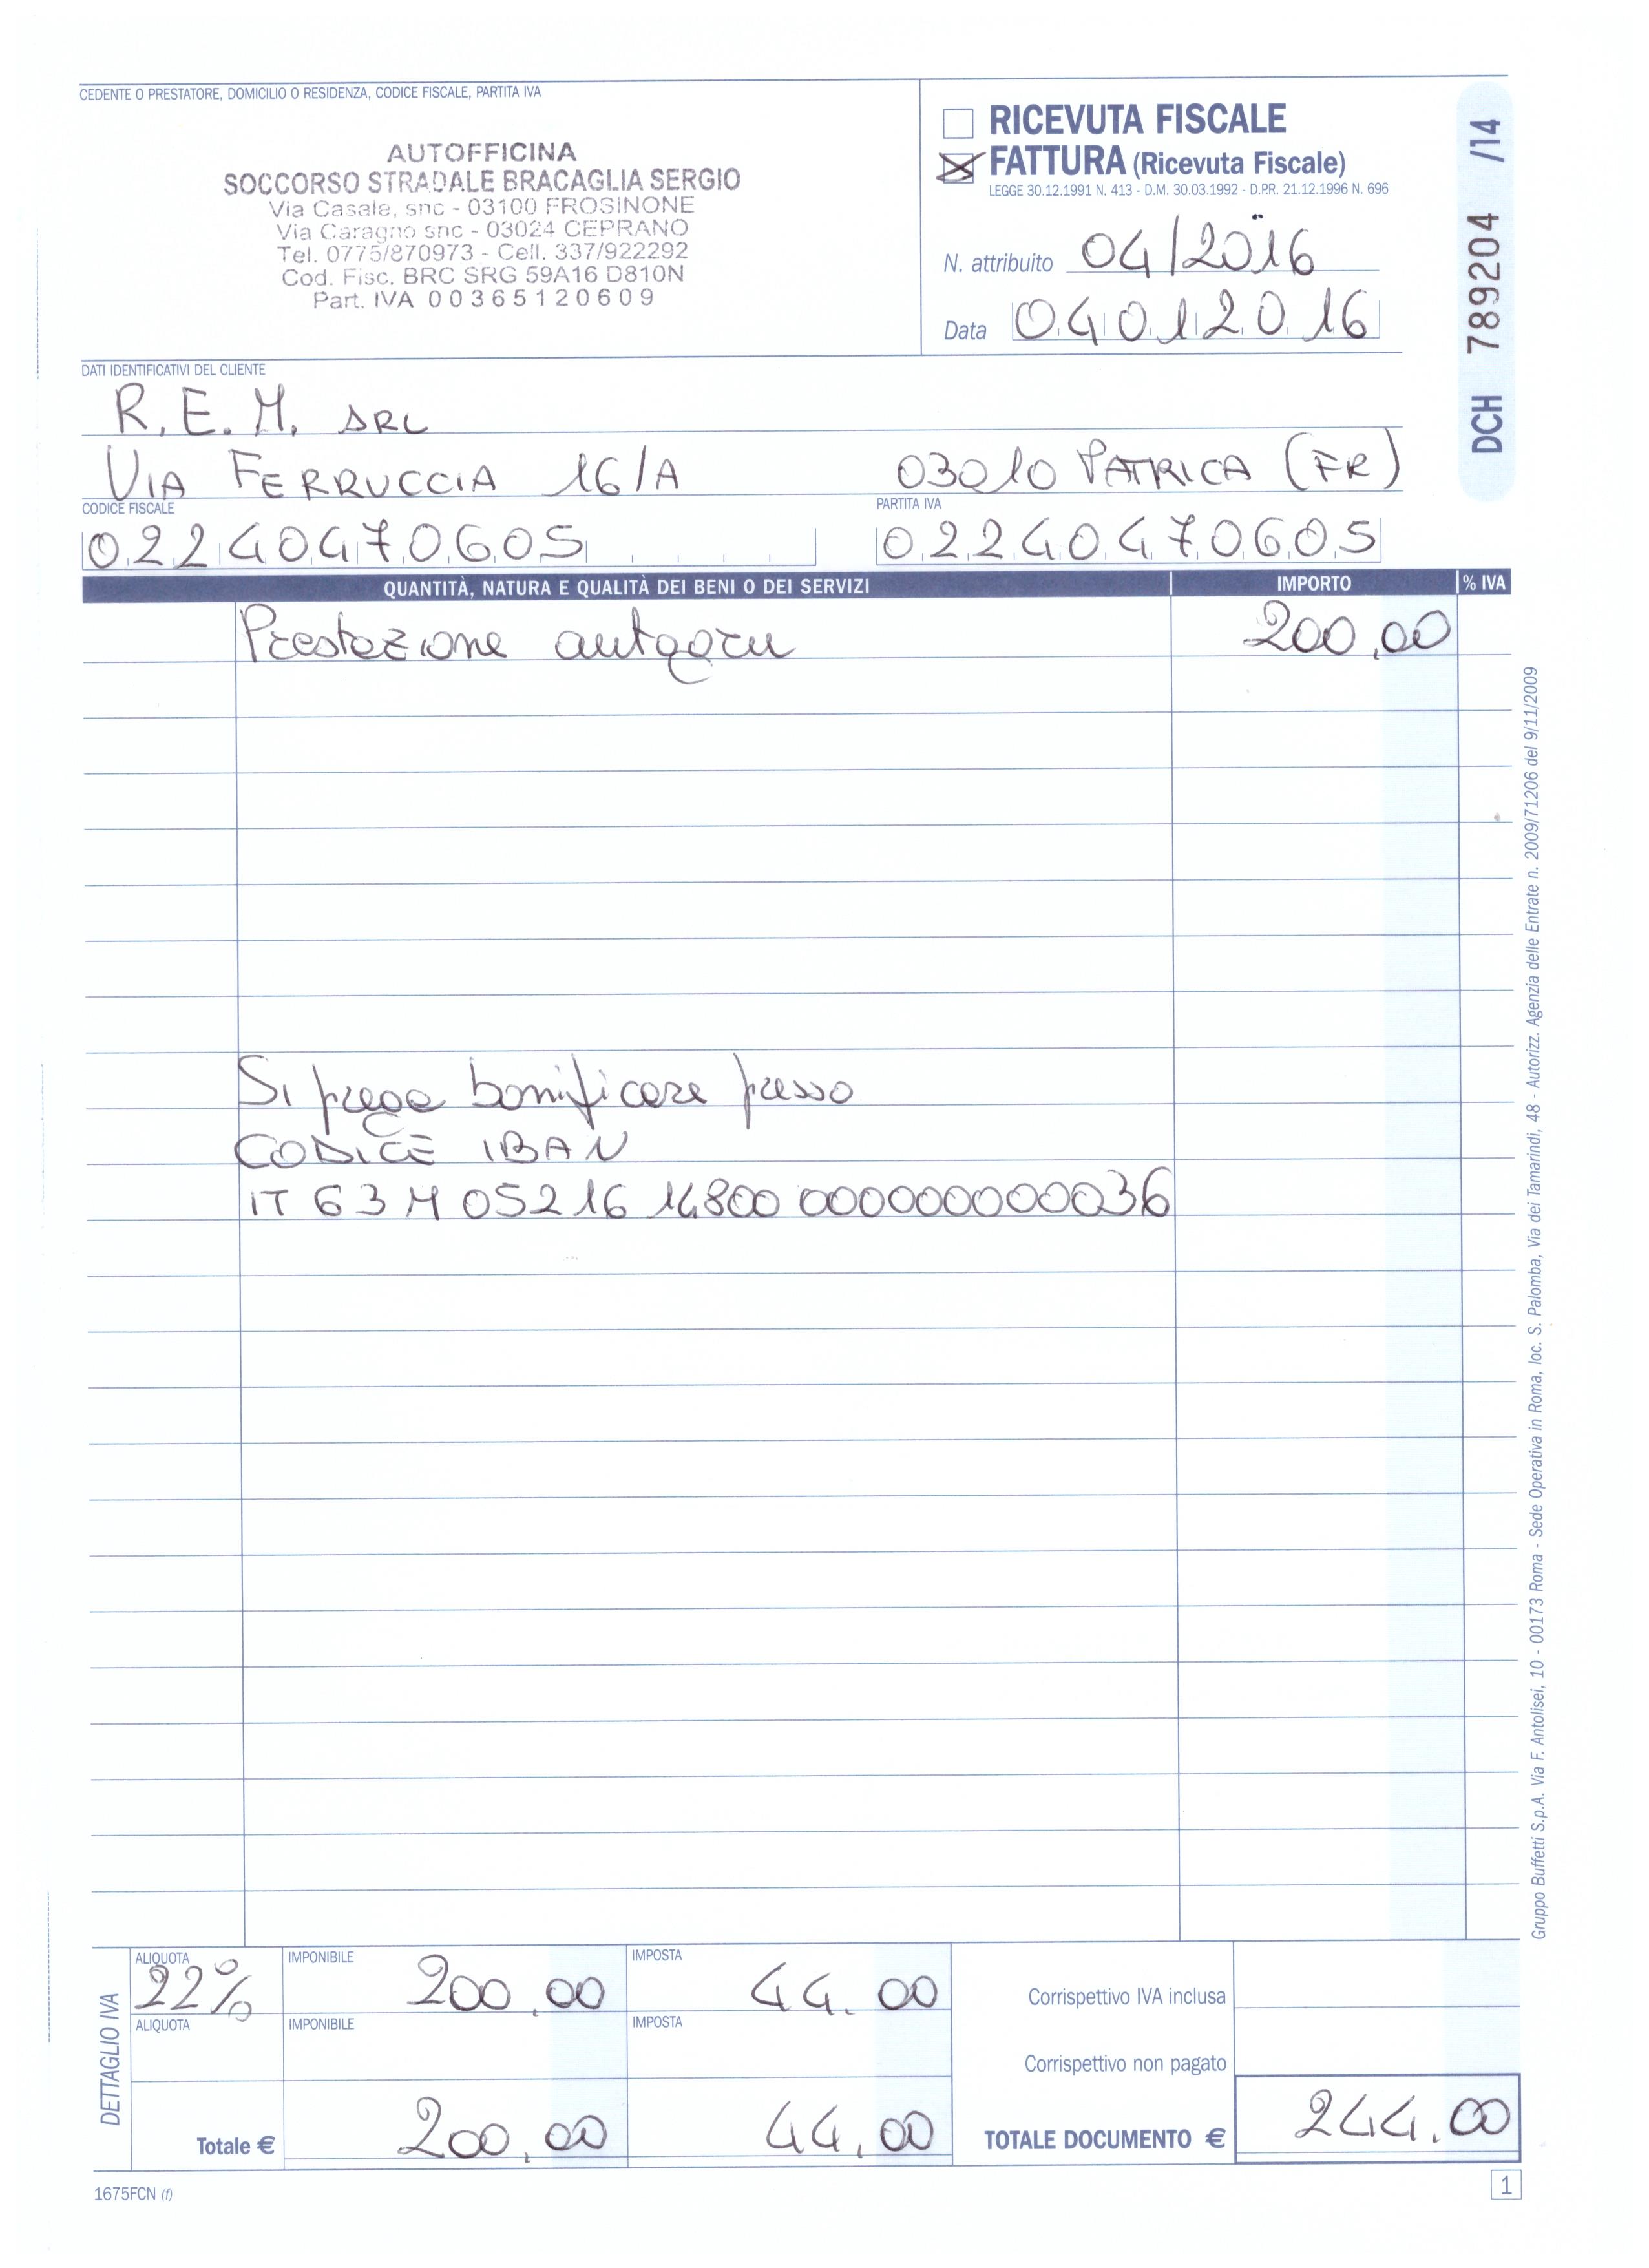 CEDENTE O PRESTATORE, DOMICILIO O RESIDENZA, CODICE FISCALE, PARTITA IVA
AUTOFFICINA
SOCCORSO STRADALE BRACAGLIA SERGIO
Via Casale, snc - 03100 FROSINONE
Via Caragno snc - 03024 CEPRANO
Tel. 0775/870973 - Cell. 337/922292
Cod. Fisc. BRC SRG 59A16 D810N
Part. IVA 00365120609
RICEVUTA FISCALE
FATTURA (Ricevuta Fiscale)
LEGGE 30.12.1991 N. 413 - D.M. 30.03.1992 - D.P.R. 21.12.1996 N. 696
N. attribuito 04/2016
Data 04012016
DCH 789204 /14
DATI IDENTIFICATIVI DEL CLIENTE
R.E.M. SRL
VIA FERRUCCIA 16/A 03010 PATRICA (FR)
CODICE FISCALE PARTITA IVA
02240470605 02240470605
QUANTITÀ, NATURA E QUALITÀ DEI BENI O DEI SERVIZI IMPORTO % IVA
Prestazione autogru 200,00
Si prega bonificare presso
CODICE IBAN
IT 63 M 05216 14800 000000000036
Gruppo Buffetti S.p.A. Via F. Antolisei, 10 - 00173 Roma - Sede Operativa in Roma, loc. S. Palomba, Via dei Tamarindi, 48 - Autorizz. Agenzia delle Entrate n. 2009/71206 del 9/11/2009
DETTAGLIO IVA
ALIQUOTA IMPONIBILE IMPOSTA
22% 200,00 44.00 Corrispettivo IVA inclusa
ALIQUOTA IMPONIBILE IMPOSTA
Corrispettivo non pagato
Totale € 200,00 44,00 TOTALE DOCUMENTO € 244.00
1675FCN (f) 1